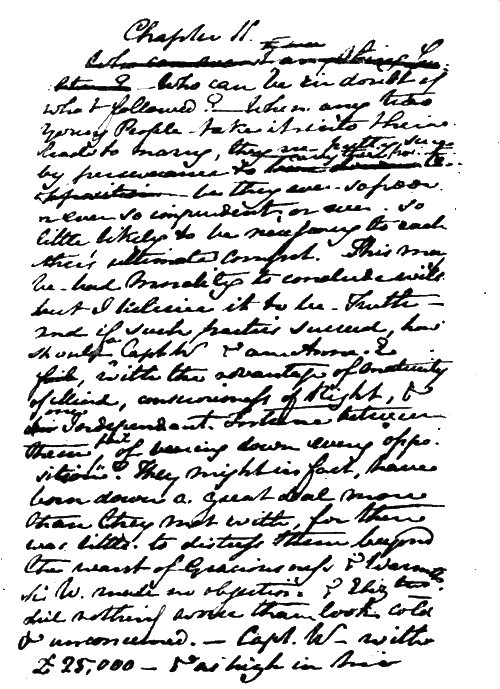 Chapter 11.
Who can be in doubt of
what followed? — When any two
Young People take it into their
heads to marry, they are pretty sure
by perseverance to carry their point —
be they ever so poor
or ever so imprudent, or ever so
little likely to be necessary to each
other's ultimate comfort. This may
be bad Morality to conclude with
but I believe it to be Truth —
and if such parties succeed, how
should a Capt. W & an Anne E
fail, with the advantage of Maturity
of Mind, consciousness of Right, &
one Independant Fortune between
them of bearing down every oppo-
sition? They might in fact, have
born down a great deal more
than they met with, for there
was little to distress them beyond
the want of Graciousness & Warmth.
Sir W. made no objection, & Eliz:th
did nothing worse than look cold
& unconcerned. — Capt. W — with
£25,000 — & as high in his